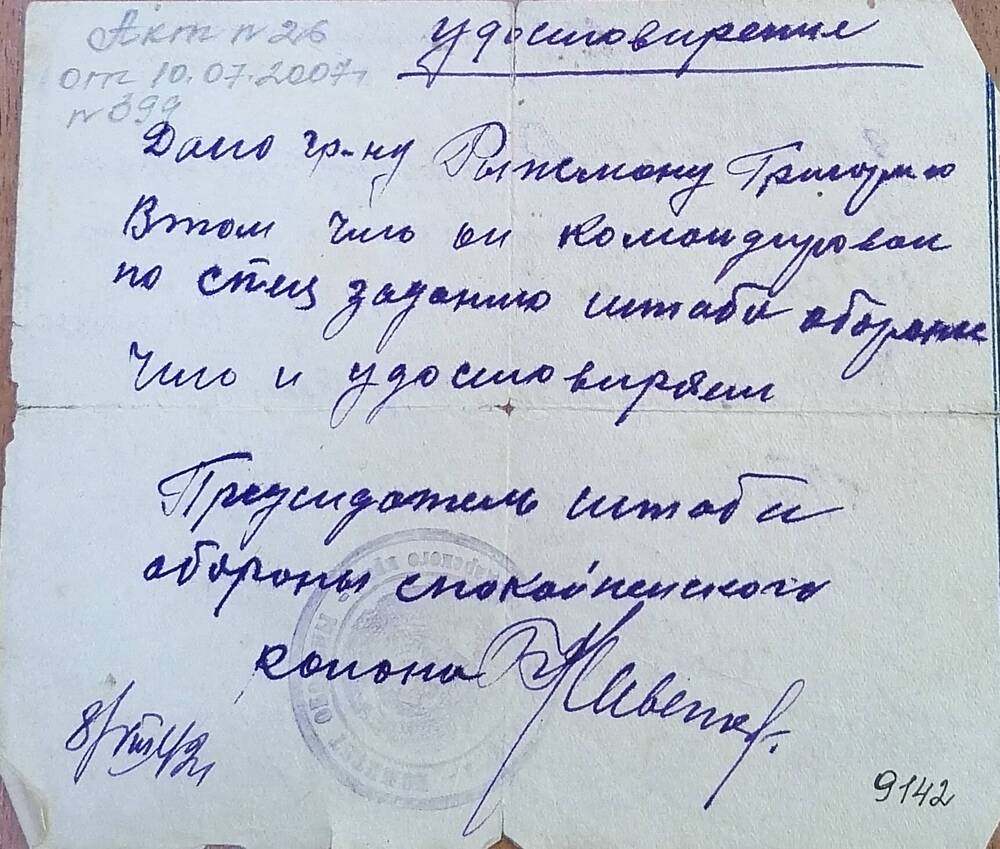 Акт n 26
от 10.07.2007г
n 399
удостовирение
Дано гр-ну Рыжману Григорию
Втом что он командирован
по спец заданию штаба обороны
Что и удостовиряем
Председатель штаба
обороны спокойненского
района
9142